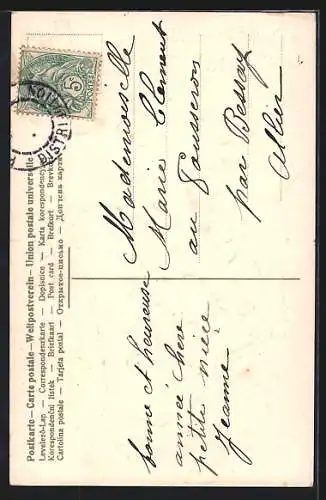 Postkarte — Carte postale — Weltpostverein — Union postale universelle
Levelező-Lap — Correspondenzkarte — Dopisnice — Karta korespondencyjna
Korespondenční lístek — Briefkaart — Post card — Brefkort — Brevkort
Cartolina postale — Tarjeta postal — Открытое-письмо — Дописна карта
5
DISTRI
Mademoiselle
Marie Clement
au
par Bessay
Allier
bonne et heureuse
année chère
petite nièce
Jeanne